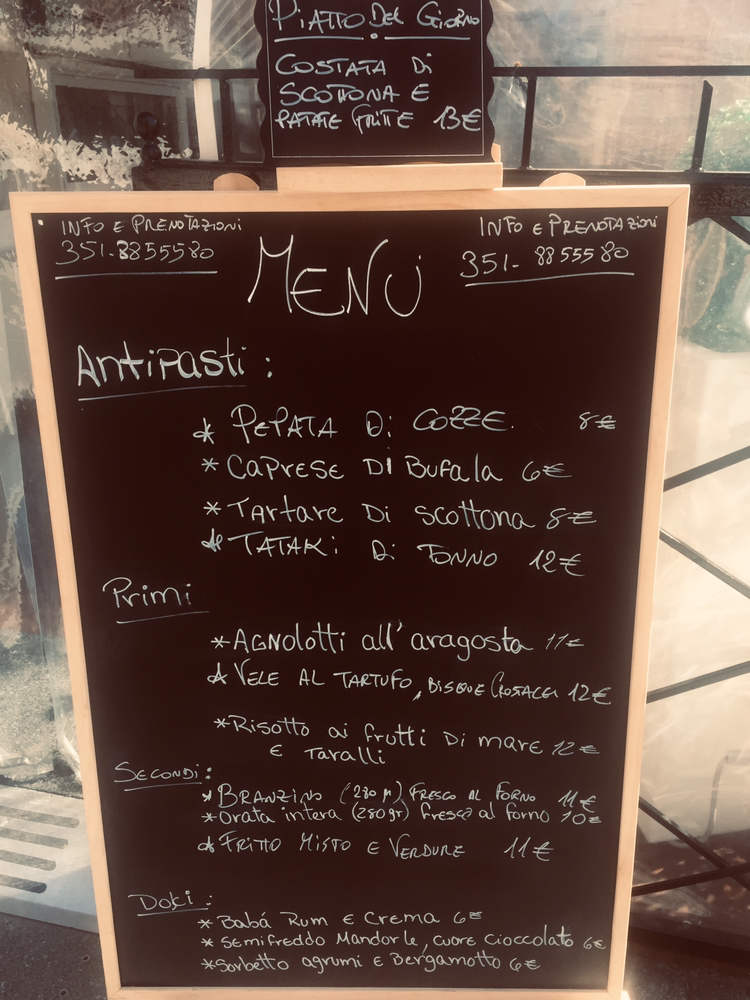 Piatto Del Giorno
COSTATA Di
SCOTTONA E
PATATE FRITTE 13€
INFO E PRENOTAZIONI
351-8855580
INFO E PRENOTAZIONI
351- 8855580
MENU
Antipasti :
* PEPATA Di COZZE. 8€
* CAPRESE DI BUFALA 6€
* TArtare Di scottona 8€
* TATAKi Di TONNO 12€
Primi
* AGNOLOTTI all'aragosta 11€
* VELE AL TARTUFO, BISQUE CROSTACEI 12€
* Risotto ai frutti Di mare 12€
E Taralli
SECONDi :
* BRANZINO (280 gr) FRESCO AL FORNO 11€
* Orata intera (280gr) fresca al forno 10€
* FRITTO MISTO E VERDURE 11€
Dolci :
* Babá Rum E Crema 6€
* Semifreddo Mandorle, cuore cioccolato 6€
* Sorbetto agrumi E Bergamotto 6€